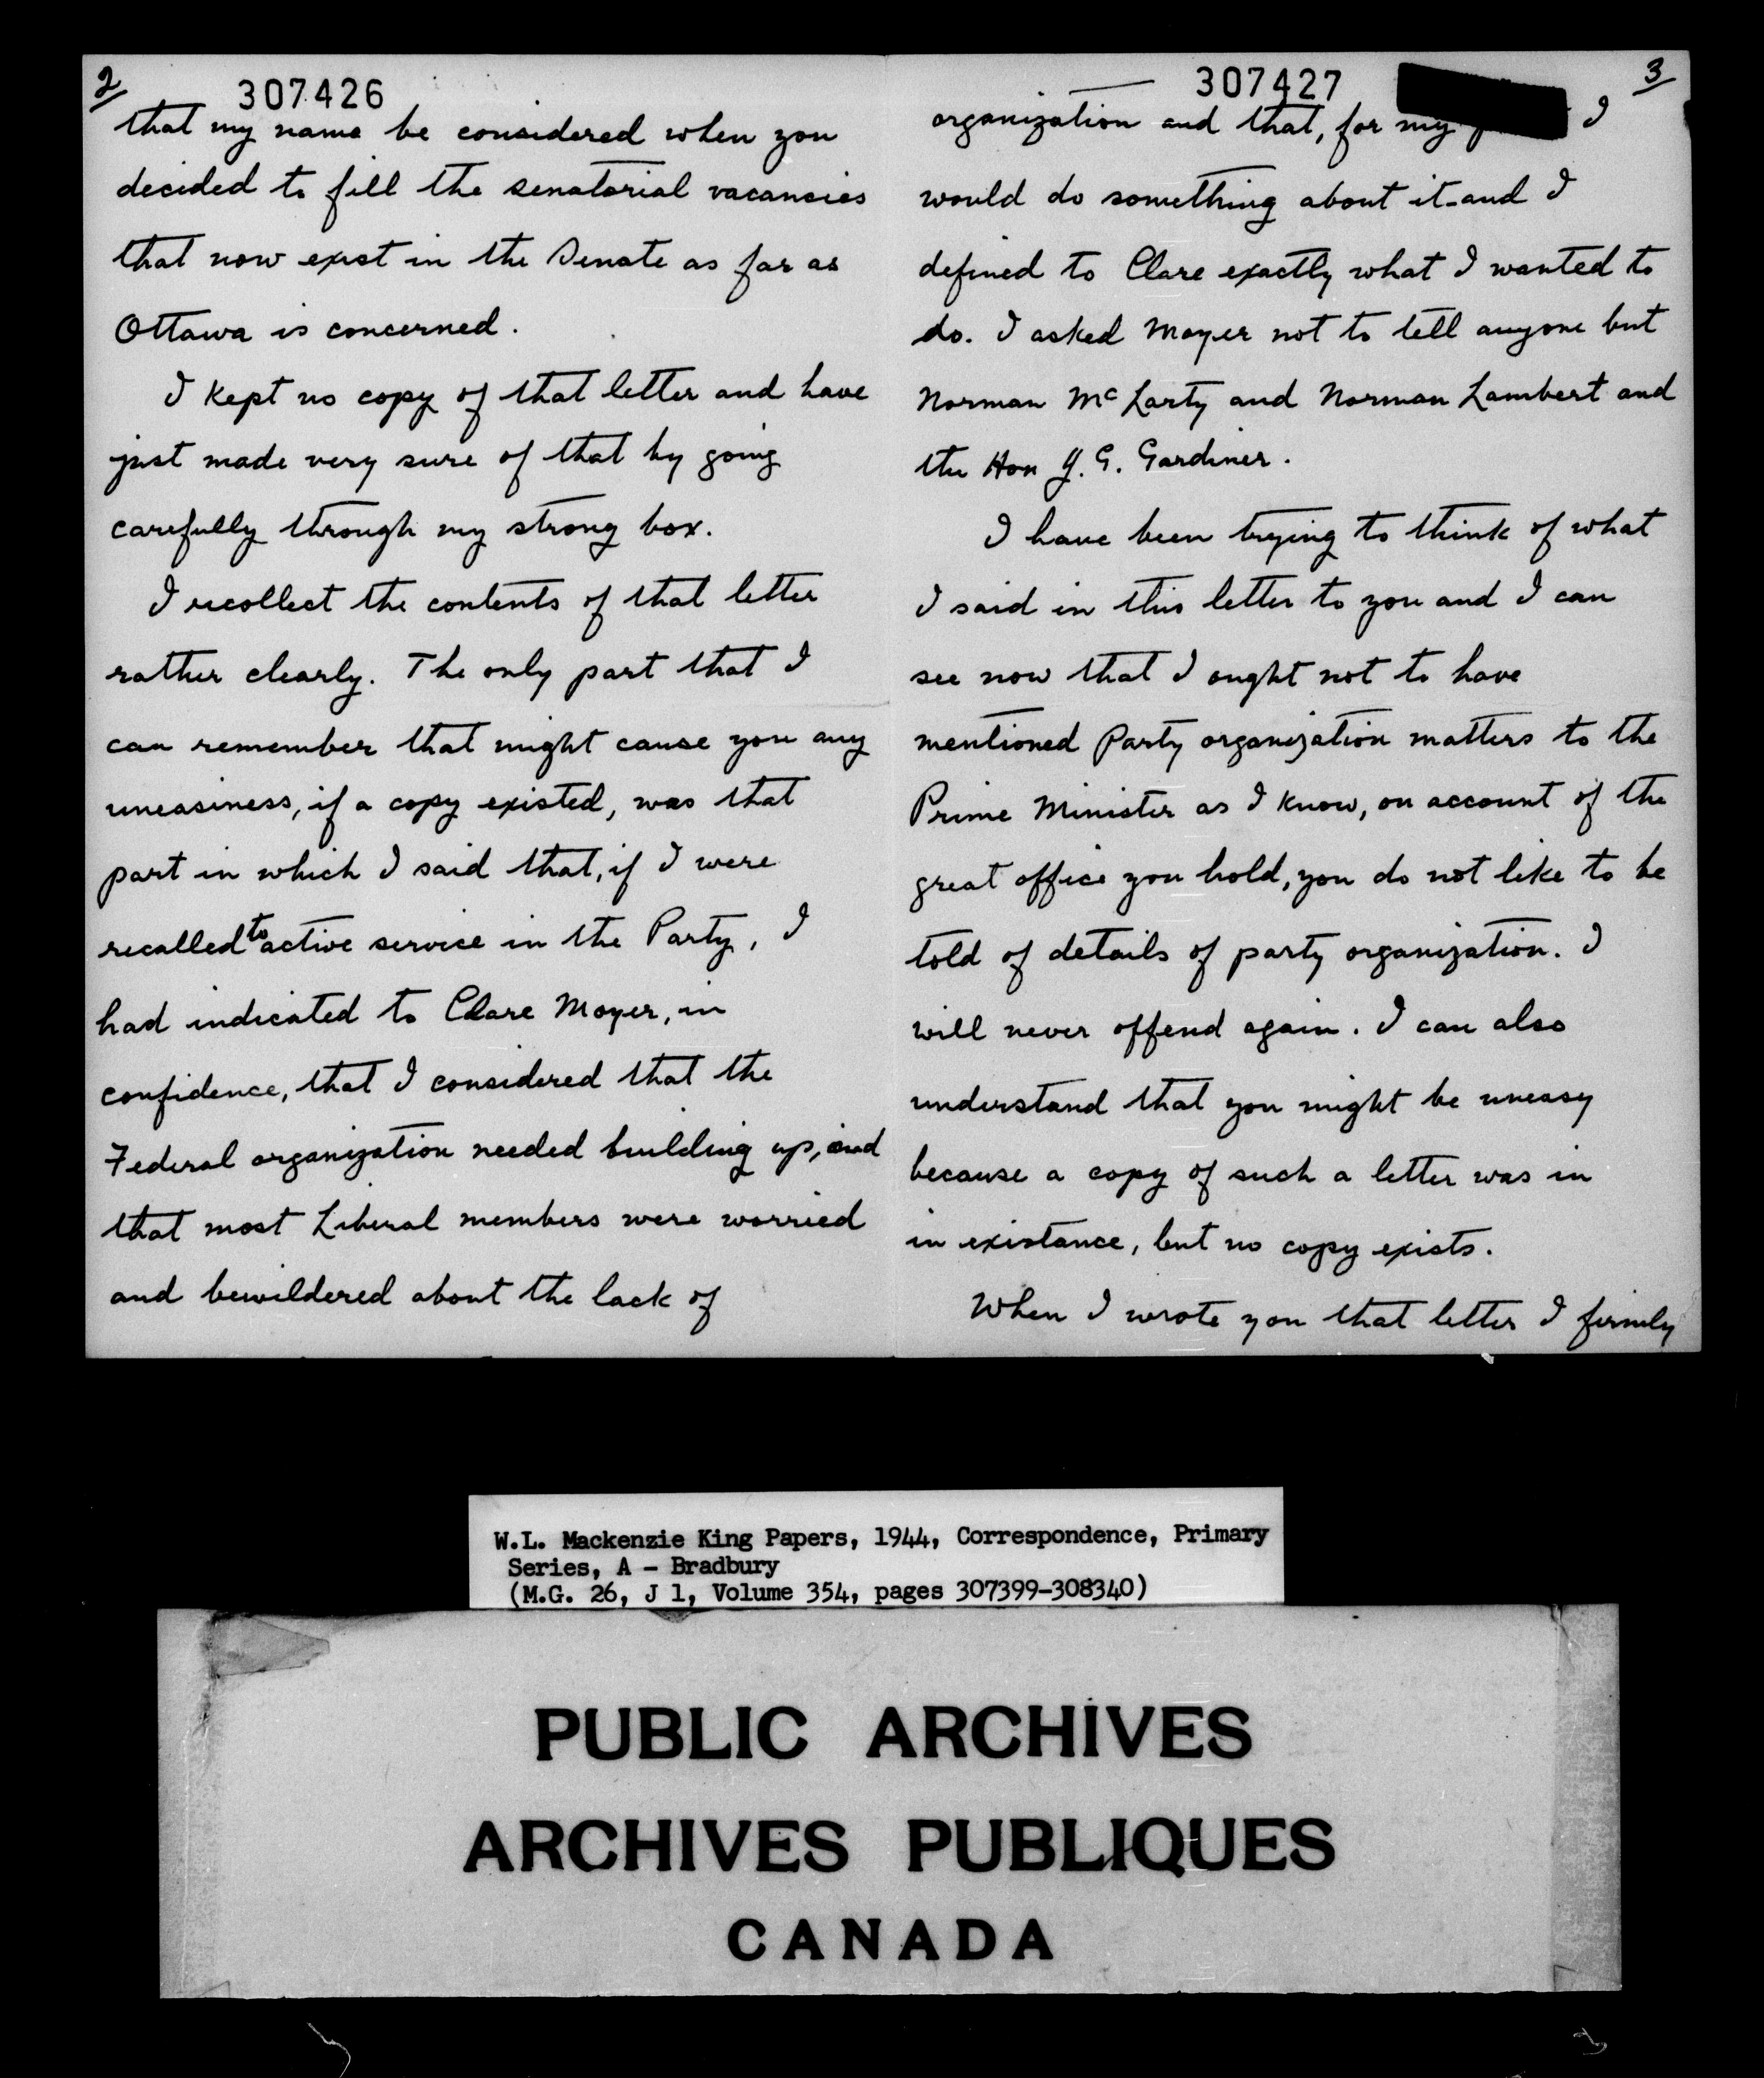 2
307426
that my name be considered when you
decided to fill the senatorial vacancies
that now exist in the Senate as far as
Ottawa is concerned.
I kept no copy of that letter and have
just made very sure of that by going
carefully through my strong box.
I recollect the contents of that letter
rather clearly. The only part that I
can remember that might cause you any
uneasiness, if a copy existed, was that
part in which I said that, if I were
recalled to active service in the Party, I
had indicated to Clare Moyer, in
confidence, that I considered that the
Federal organization needed building up, and
that most Liberal members were worried
and bewildered about the lack of
307427
3
organization and that, for my I
would do something about it - and I
defined to Clare exactly what I wanted to
do. I asked Moyer not to tell anyone but
Norman McLarty and Norman Lambert and
the Hon J. G. Gardiner.
I have been trying to think of what
I said in this letter to you and I can
see now that I ought not to have
mentioned Party organization matters to the
Prime Minister as I know, on account of the
great office you hold, you do not like to be
told of details of party organization. I
will never offend again. I can also
understand that you might be uneasy
because a copy of such a letter was in
in existance, but no copy exists.
When I wrote you that letter I firmly
W.L. Mackenzie King Papers, 1944, Correspondence, Primary
Series, A - Bradbury
(M.G. 26, J 1, Volume 354, pages 307399-308340)
PUBLIC ARCHIVES
ARCHIVES PUBLIQUES
CANADA